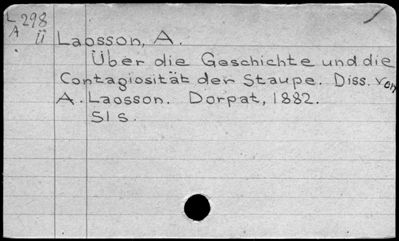 L 298
A ü
Laosson, A.
Über die Geschichte und die
Contagiosität der Staupe. Diss. von
A. Laosson. Dorpat, 1882.
51 s.